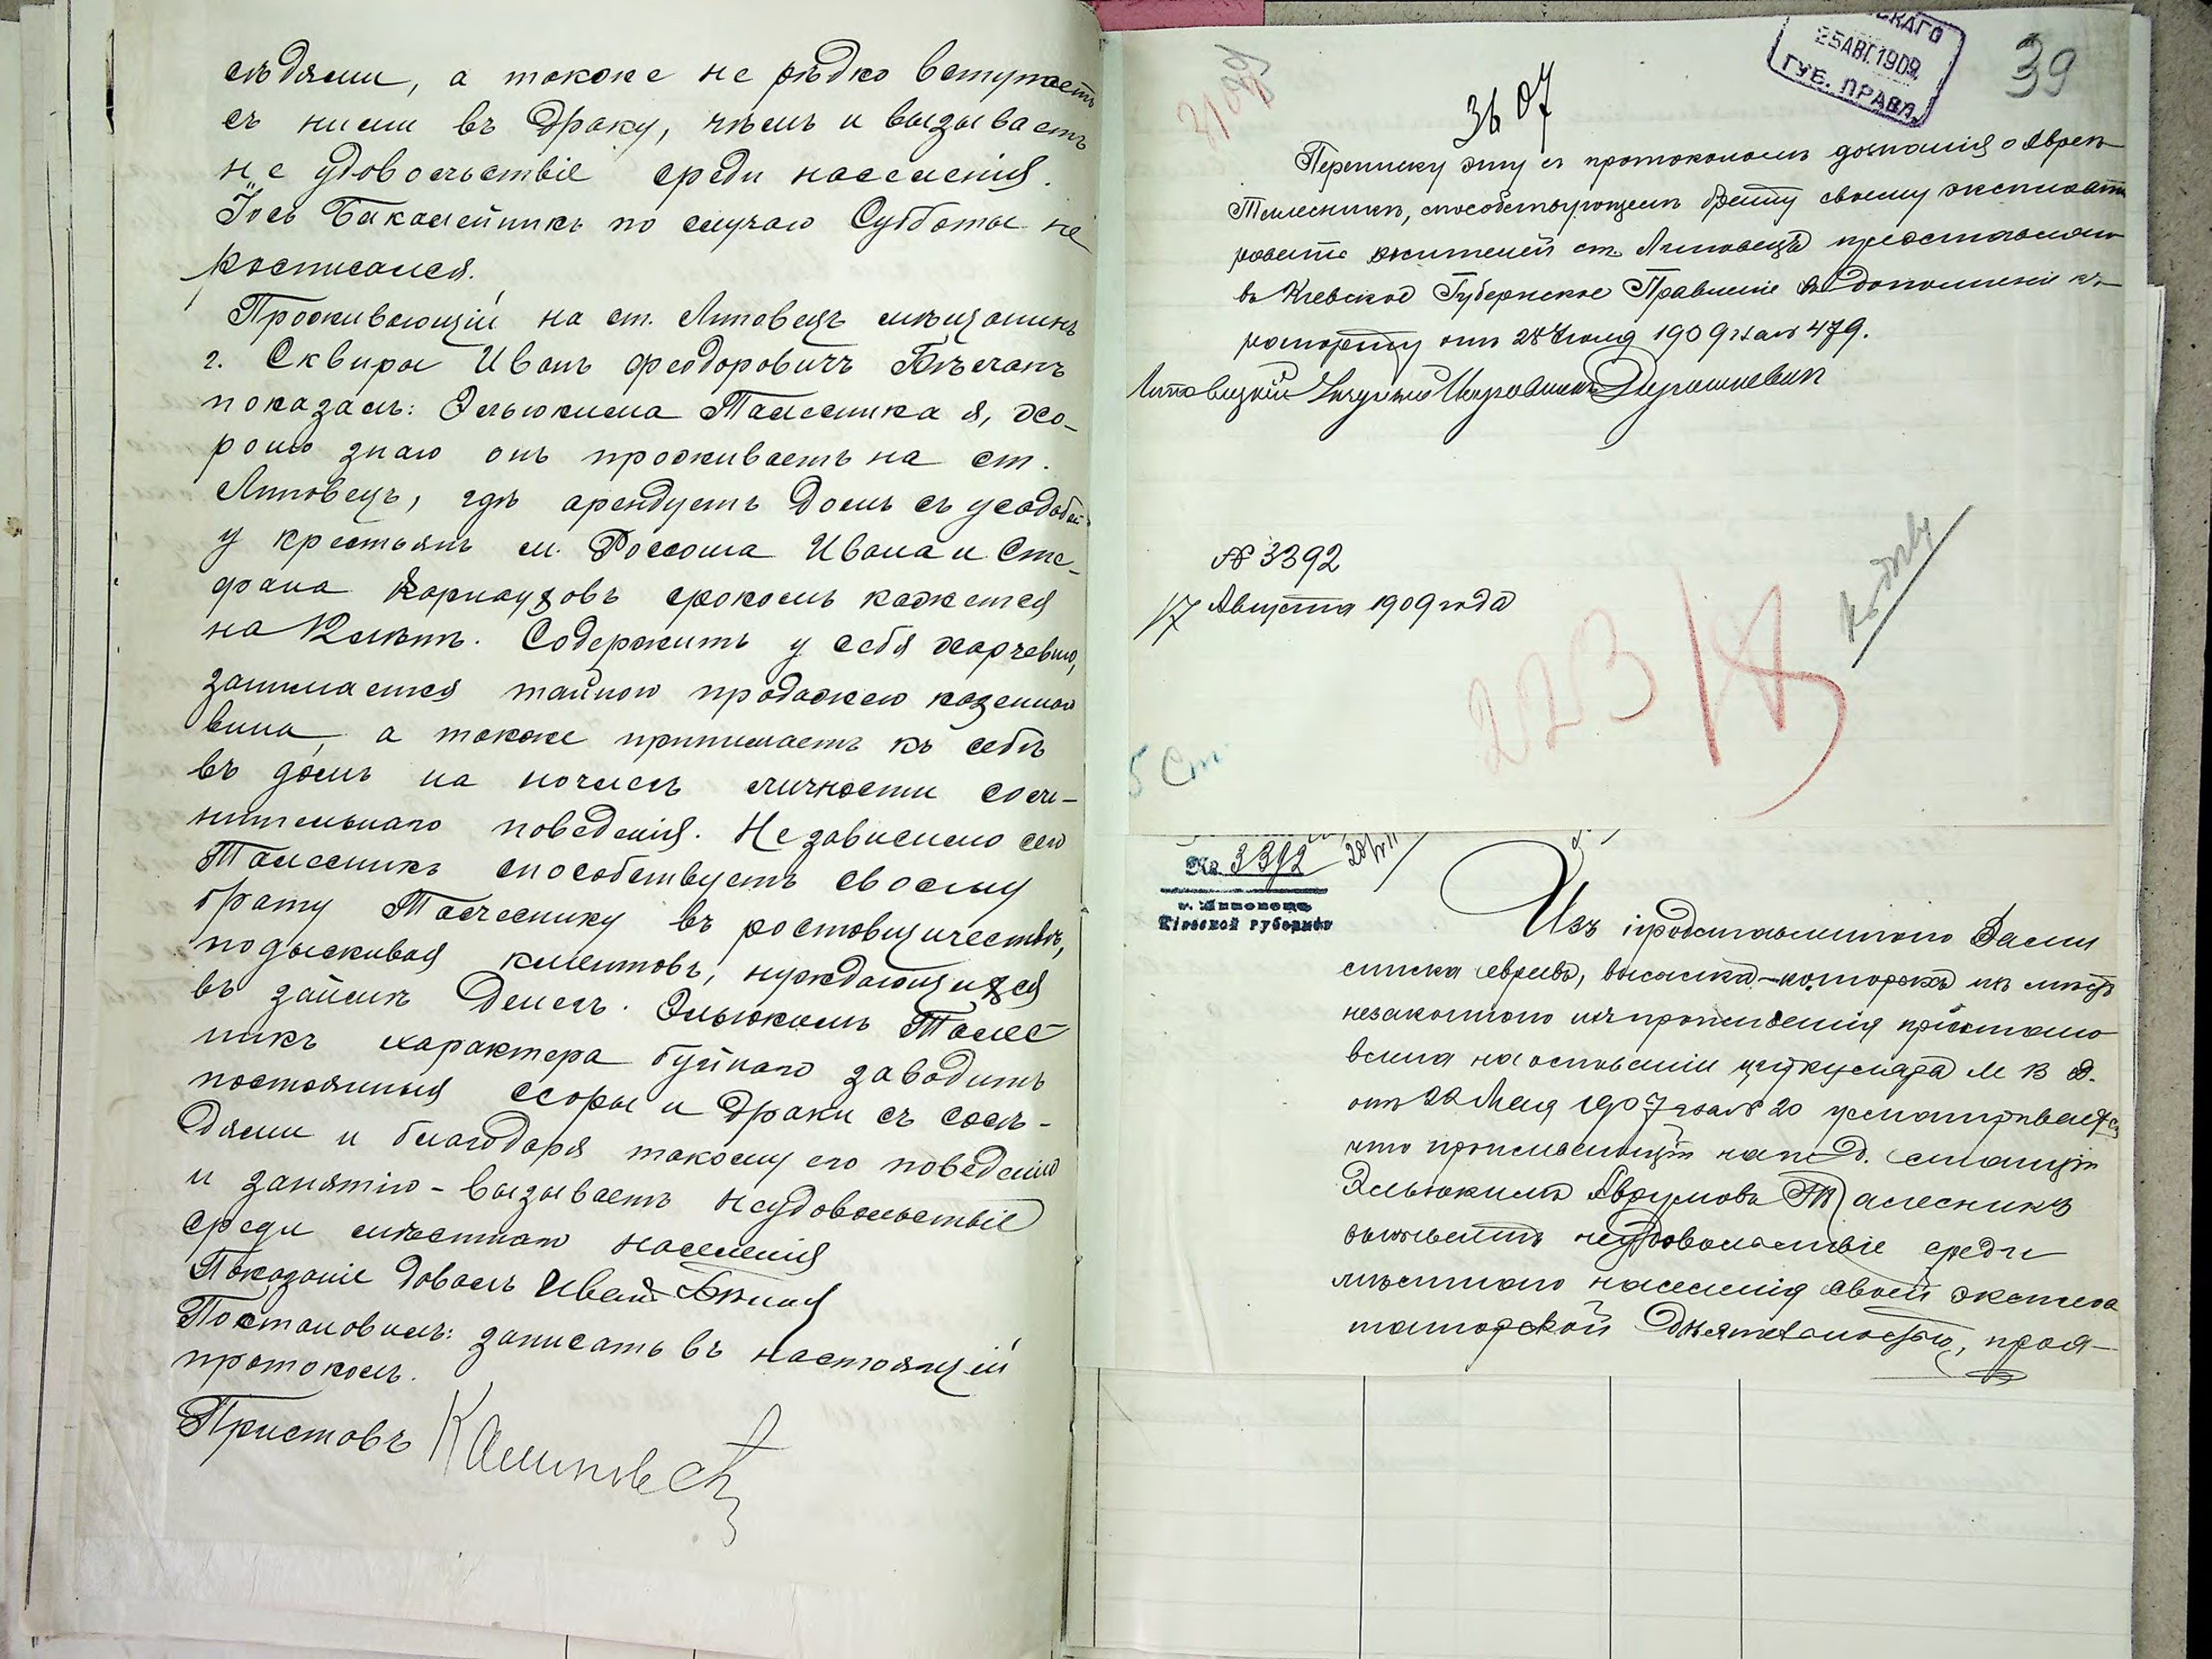 сѣдями, а также не рѣдко вступаетъ
съ ними въ драку, чѣмъ и вызываетъ
не удовольствіе среди населенія.
Іось Бакалейникъ по случаю Субботы не
росписался.
Проживающій на ст. Липовецъ мѣщанинъ
г. Сквиры Иванъ Феодоровичъ
показалъ: Эльюкима Талесника я, хо-
рошо знаю онъ проживаетъ на ст.
Липовецъ, гдѣ арендуетъ домъ съ усадьбой
у крестьянъ м. Россоша Ивана и Сте-
фана Карнауховъ срокомъ кажется
на 12 лѣтъ. Содержитъ у себя харчевню,
занимается тайною продажею казенного
вина, а также принимаетъ къ себѣ
въ домъ на ночлегъ личности сом-
нительнаго поведенія. Независимо сего
Талесникъ способствуетъ своему
брату Талеснику въ ростовщичествѣ,
подыскивая клиентовъ, нуждающихся
въ займѣ денегъ. Эльюкимъ Талес-
никъ характера буйнаго заводитъ
постоянныя ссоры и драки съ сосѣ-
дями и благодаря такому его поведенію
и занятію - вызываетъ неудовольствіе
среди мѣстнаго населенія
Показаніе довалъ Иванъ
Постановилъ: записать въ настоящій
протоколъ.
Приставъ
СКАГО
25 АВГ. 1909
ГУБ. ПРАВЛ.
39
3607
Переписку эту съ протоколомъ дознанія о еврее
Талесникѣ, способствующемъ брату своему эксплоати
ровать жителей ст. Липовецъ представляю
въ Кіевское Губернское Правленіе въ дополненіе къ
рапорту отъ 28 Іюля 1909 г. за № 479.
Липовецкій Уѣздный Исправникъ
№ 3392
17 Августа 1909 года
223
5 Ст.
№ 3392
г. Липовецъ
Кіевской губерніи
Изъ представленнаго Вами
списка евреевъ, высылка которыхъ изъ мѣстъ
незаконного ихъ проживанія пріостано
влена на основаніи циркуляра М В Д.
отъ 22 Мая 1907 г. за № 20 усматривается
что проживающій на ж. д. станціи
Эльюкимъ Аврумовъ Талесникъ
вызываетъ неудовольствіе среди
мѣстнаго населенія своей эксплоа
таторской дѣятельностью, проя-